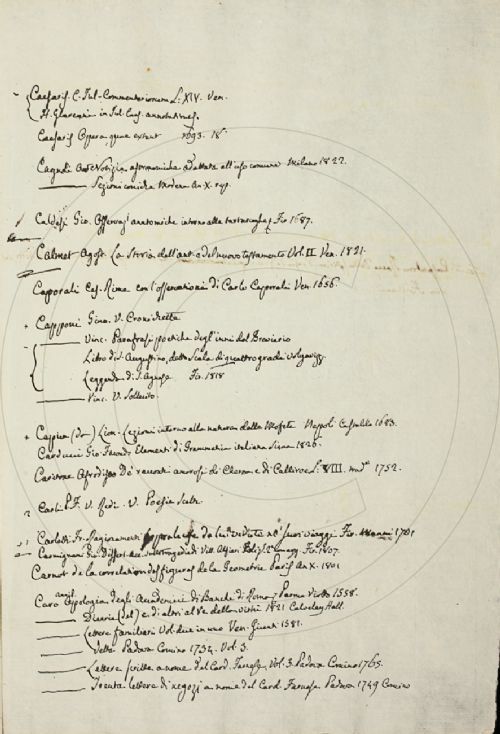 Caesaris C. Jul. Commentariorum L. XIV. Ven.
H. Glareani in Jul. Caes. annotationes.
Caesaris Opera quae extant 1693. 18°
Cagnoli Ant. Notizie astronomiche adattate all'uso comune Milano 1822.
Sezioni coniche Modena An. X.
Caldesi Gio. Osservaz. anatomiche intorno alle tartarughe Fir. 1687.
Calmet Agost. La Storia dell'ant. e del nuovo testamento Vol. II Ven. 1821.
Caporali Ces. Rime con l'osservazioni di Carlo Caporali Ven. 1656.
Capponi Gino. V. Cronichetta
Vinc. Parafrasi poetiche degl'inni del Breviario
Libro di S. Augustino, detto Scala di quattro gradi volgarizz.
Leggenda di S. Fir. 1818
Vinc. V. Solleido
Capua (da) Lion. Lezioni intorno alla natura delle Mofete Napoli 1683.
Carducci Gio. Elementi di Grammatica italiana Siena 1826.
Caritone Afrodiseo De' racconti amorosi di Cherea e di Calliroe L. VIII. 1752.
Carli P. F. V. Redi. V. Poesie Scelte
Carletti Fr. Ragionamenti sopra le cose da lui vedute ne' suoi viaggi Fir. 1701
Carmignani Gio. Dissert. sulle tragedie di Vitt. Alfieri Fir. 1807.
Carnot de la correlation des figures de la Geometrie Paris An. X. 1801
Caro Annib. Appologia degli Academici di Banchi di Roma, Parma Viotto 1558.
Dicerie (del) e di altri a' Re della virtù 1821 Calveley Hall.
Lettere familiari Vol. due in uno Ven. Giunti 1581.
Dette Padova Comino 1734. Vol. 3.
Lettere scritte a nome del Card. Farnese. Vol. 3. Padova Comino 1765.
Trenta lettere di negozj a nome del Card. Farnese Padova 1749 Comino